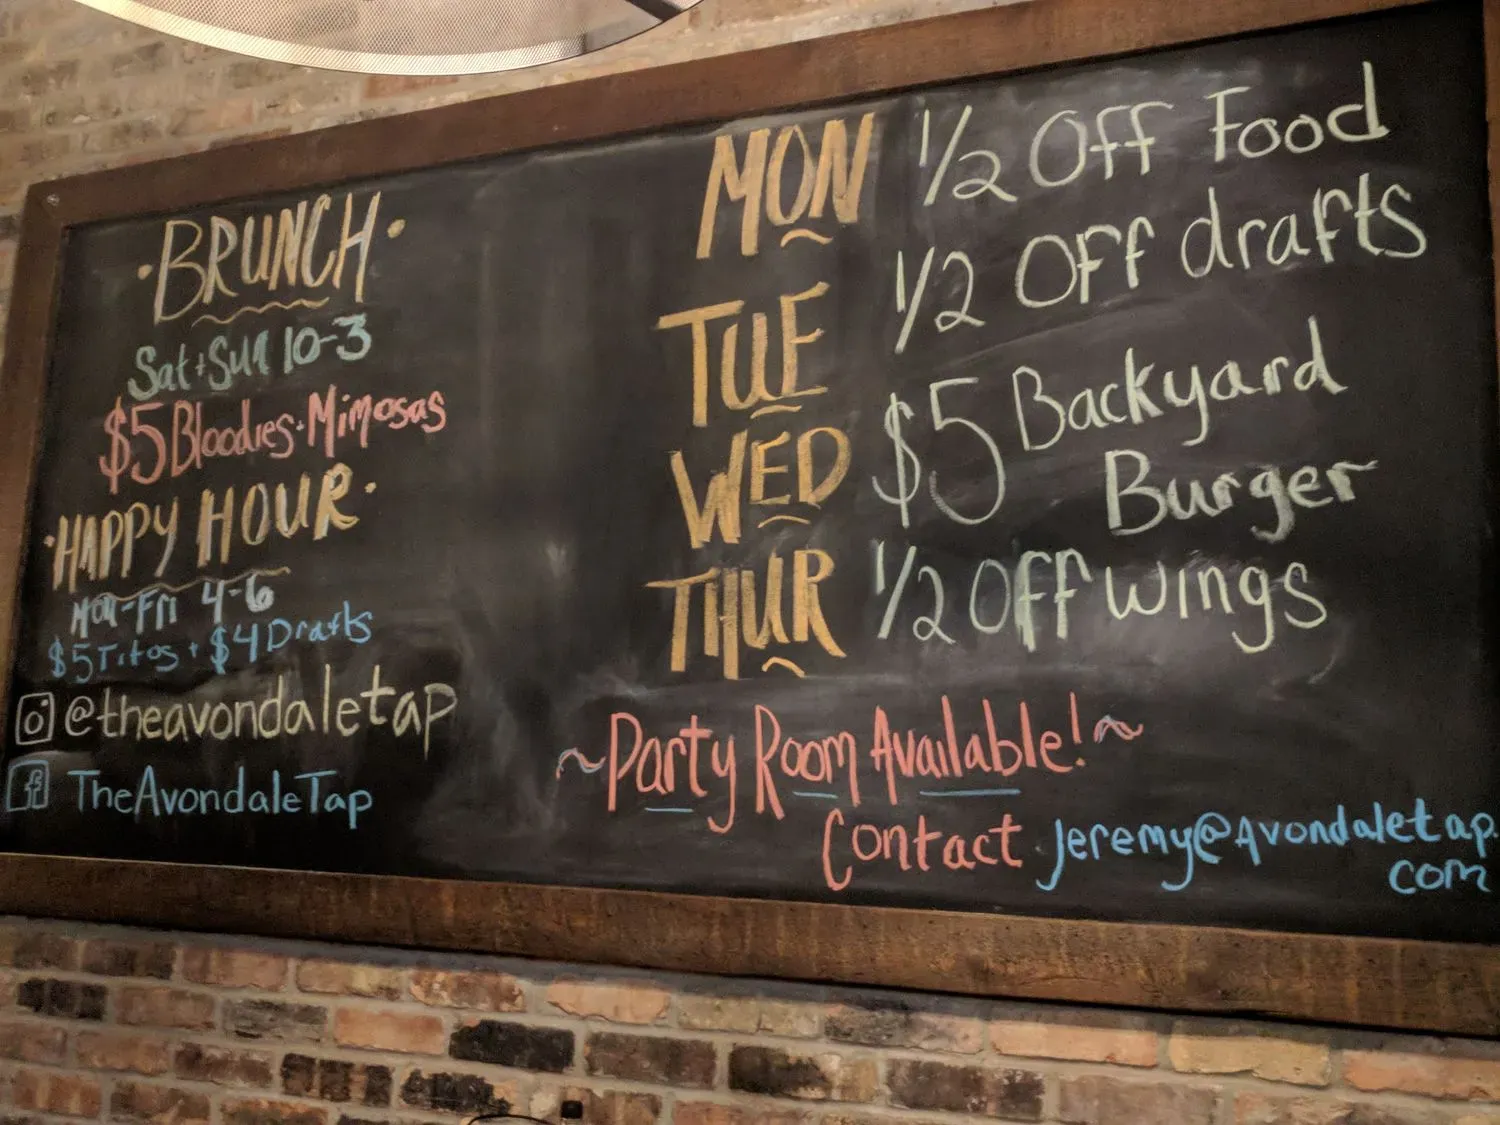 ·BRUNCH·
Sat+Sun 10-3
$5 Bloodies+Mimosas
·HAPPY HOUR·
Mon-Fri 4-6
$5 Titos + $4 Drafts
@theavondaletap
f TheAvondaleTap
MON 1/2 Off Food
TUE 1/2 OFF drafts
WED $5 Backyard
Burger
THUR 1/2 OFF wings
~Party Room Available!~
Contact Jeremy@Avondaletap.
com